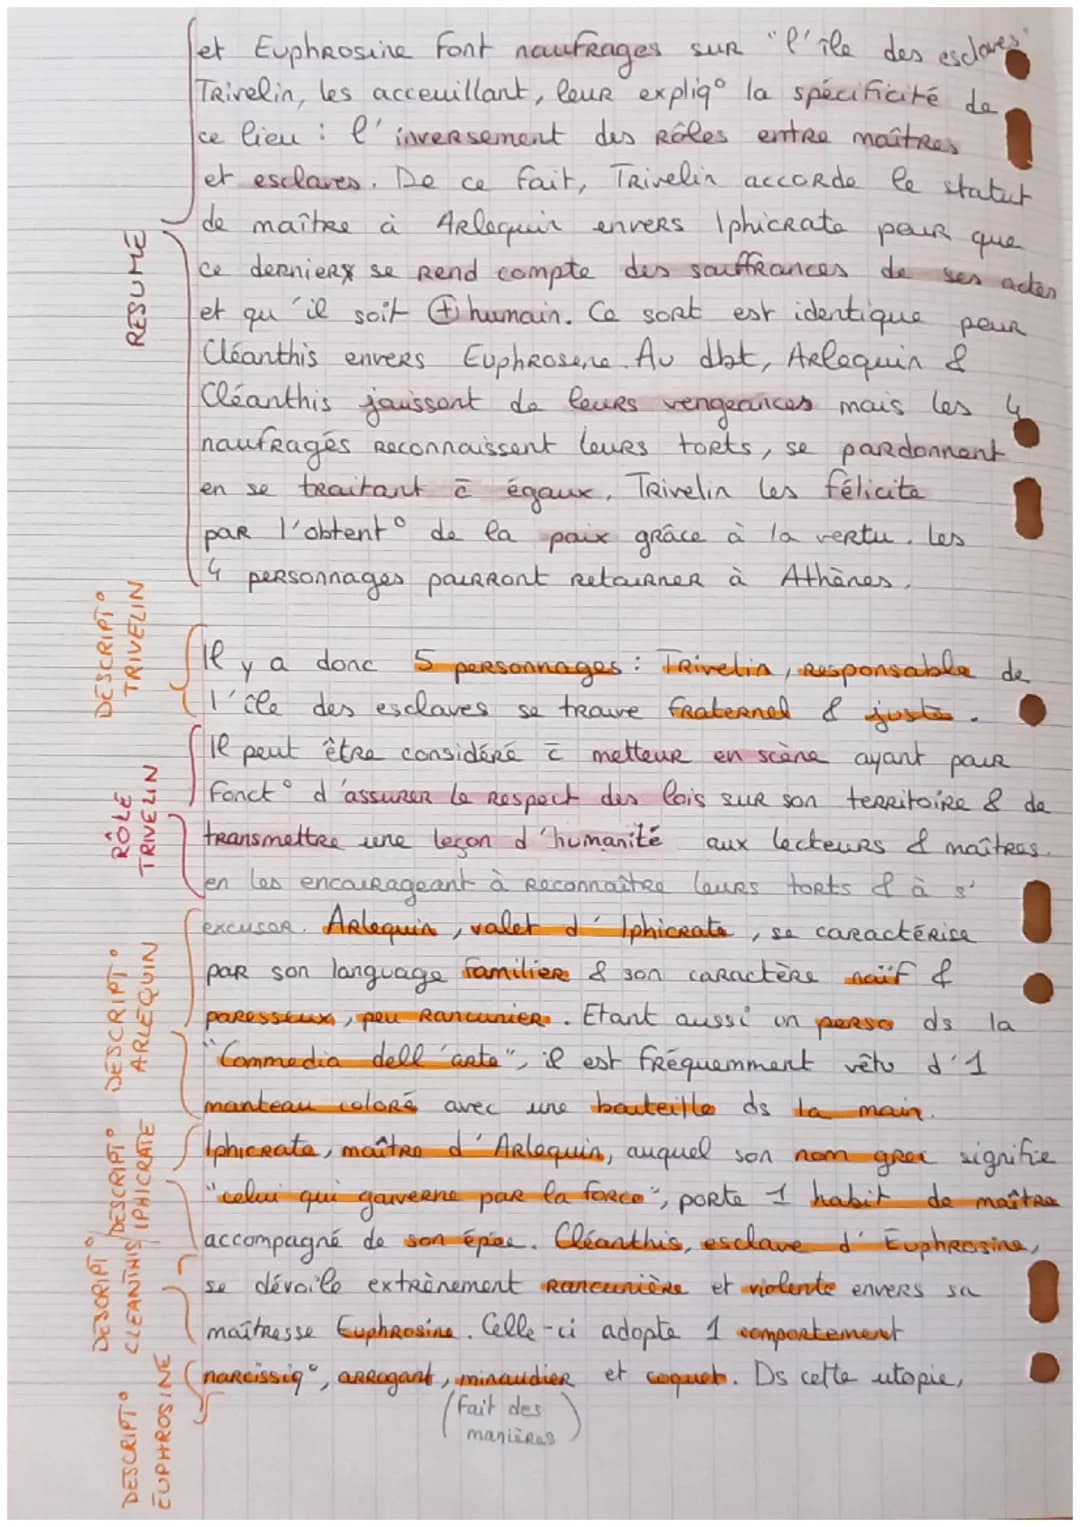 et Euphrosine font naufrages sur "l'île des esclaves"
Trivelin, les acceuillant, leur expliq° la spécificité de
ce lieu : l'inversement des rôles entre maîtres
et esclaves. De ce fait, Trivelin accorde le statut
de maître à Arlequin envers Iphicrate pour que
ce dernier se rend compte des souffrances de ses actes
et qu'il soit ⊕ humain. Ce sort est identique pour
Cléanthis envers Euphrosene. Au dbt, Arlequin &
Cléanthis jouissent de leurs vengeances mais les 4
naufragés reconnaissent leurs torts, se pardonnent
en se traitant c̄ égaux, Trivelin les félicite
par l'obtent° de la paix grâce à la vertu. les
4 personnages pourront retourner à Athènes.
RESUMÉ
Il y a donc 5 personnages : Trivelin, responsable de
l'île des esclaves se trouve fraternel & juste.
DESCRIPT°
TRIVELIN
Il peut être considéré c̄ metteur en scène ayant pour
fonct° d'assurer le respect des lois sur son territoire & de
transmettre une leçon d'humanité aux lecteurs & maîtres.
en les encourageant à reconnaître leurs torts & à s'
RÔLE
TRIVELIN
excuser. Arlequin, valet d'Iphicrate, se caractérise
par son language familier & son caractère naïf &
paresseux, peu rancunier. Etant aussi un perso ds la
"Commedia dell'arte", il est fréquemment vêtu d'1
manteau coloré avec une bouteille ds la main.
DESCRIPT°
ARLEQUIN
Iphicrate, maître d'Arlequin, auquel son nom grec signifie
"celui qui gouverne par la force", porte 1 habit de maître
accompagné de son épée. Cléanthis, esclave d'Euphrosine,
DESCRIPT°
IPHICRATE
se dévoile extrènement rancunière et violente envers sa
maîtresse Euphrosine. Celle-ci adopte 1 comportement
DESCRIPT°
CLEANTHIS
narcissiq°, arrogant, minaudier et coquet. Ds cette utopie,
(fait des
manières)
DESCRIPT°
EUPHROSINE